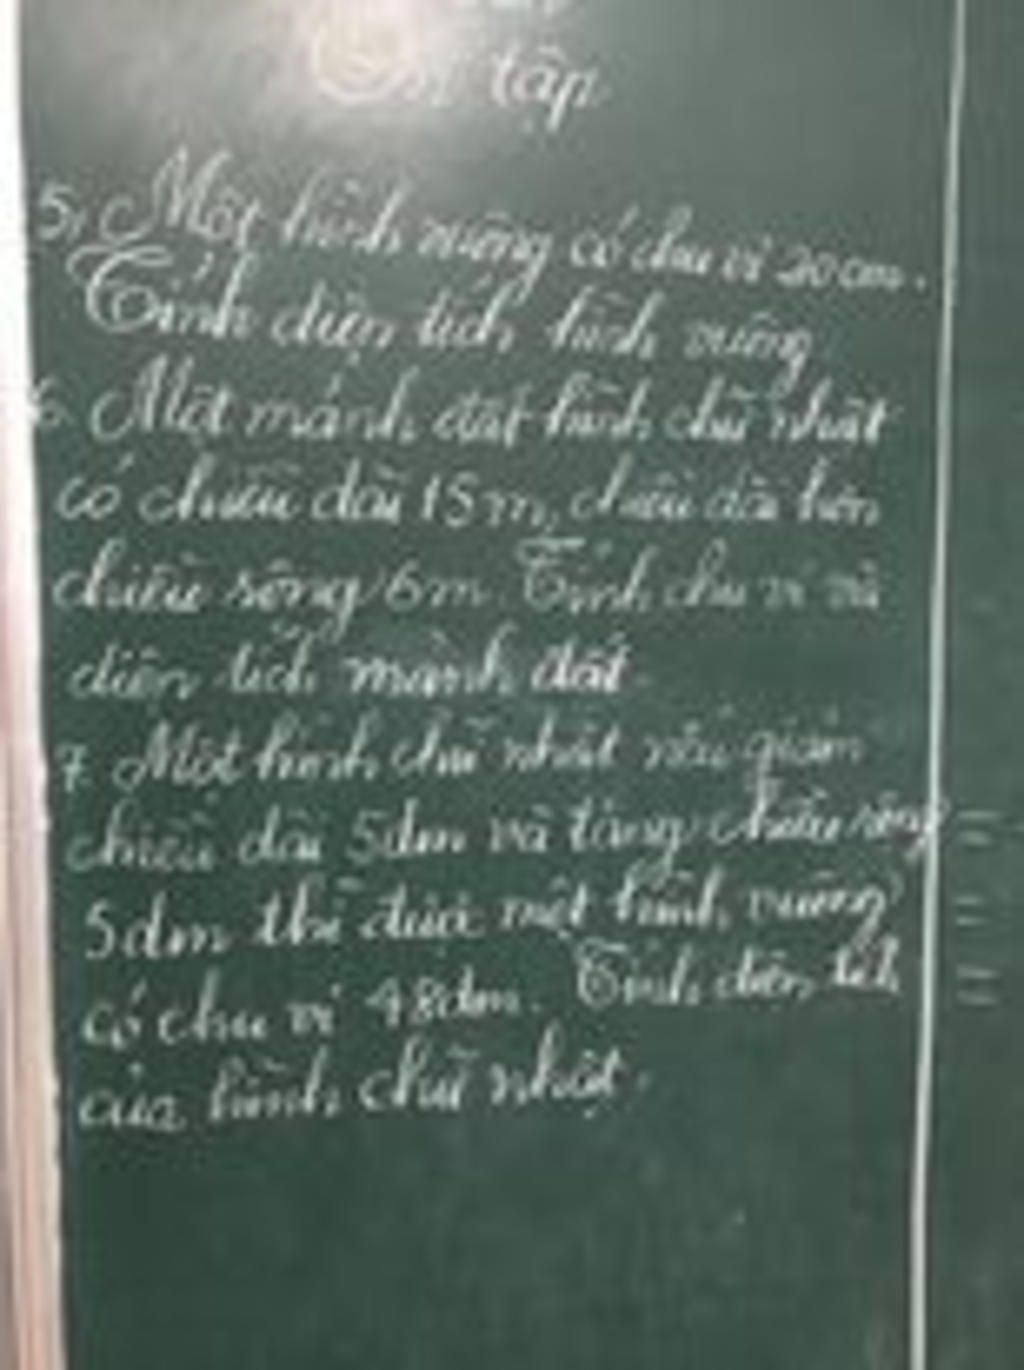 Ôn tập
5, Một hình vuông có chu vi 20cm.
Tính diện tích hình vuông
6. Một mảnh đất hình chữ nhật
có chiều dài 15m, chiều dài hơn
chiều rộng 6m. Tính chu vi và
diện tích mảnh đất.
7. Một hình chữ nhật nếu giảm
chiều dài 5dm và tăng chiều rộng
5dm thì được một hình vuông
có chu vi 48dm. Tính diện tích
của hình chữ nhật.